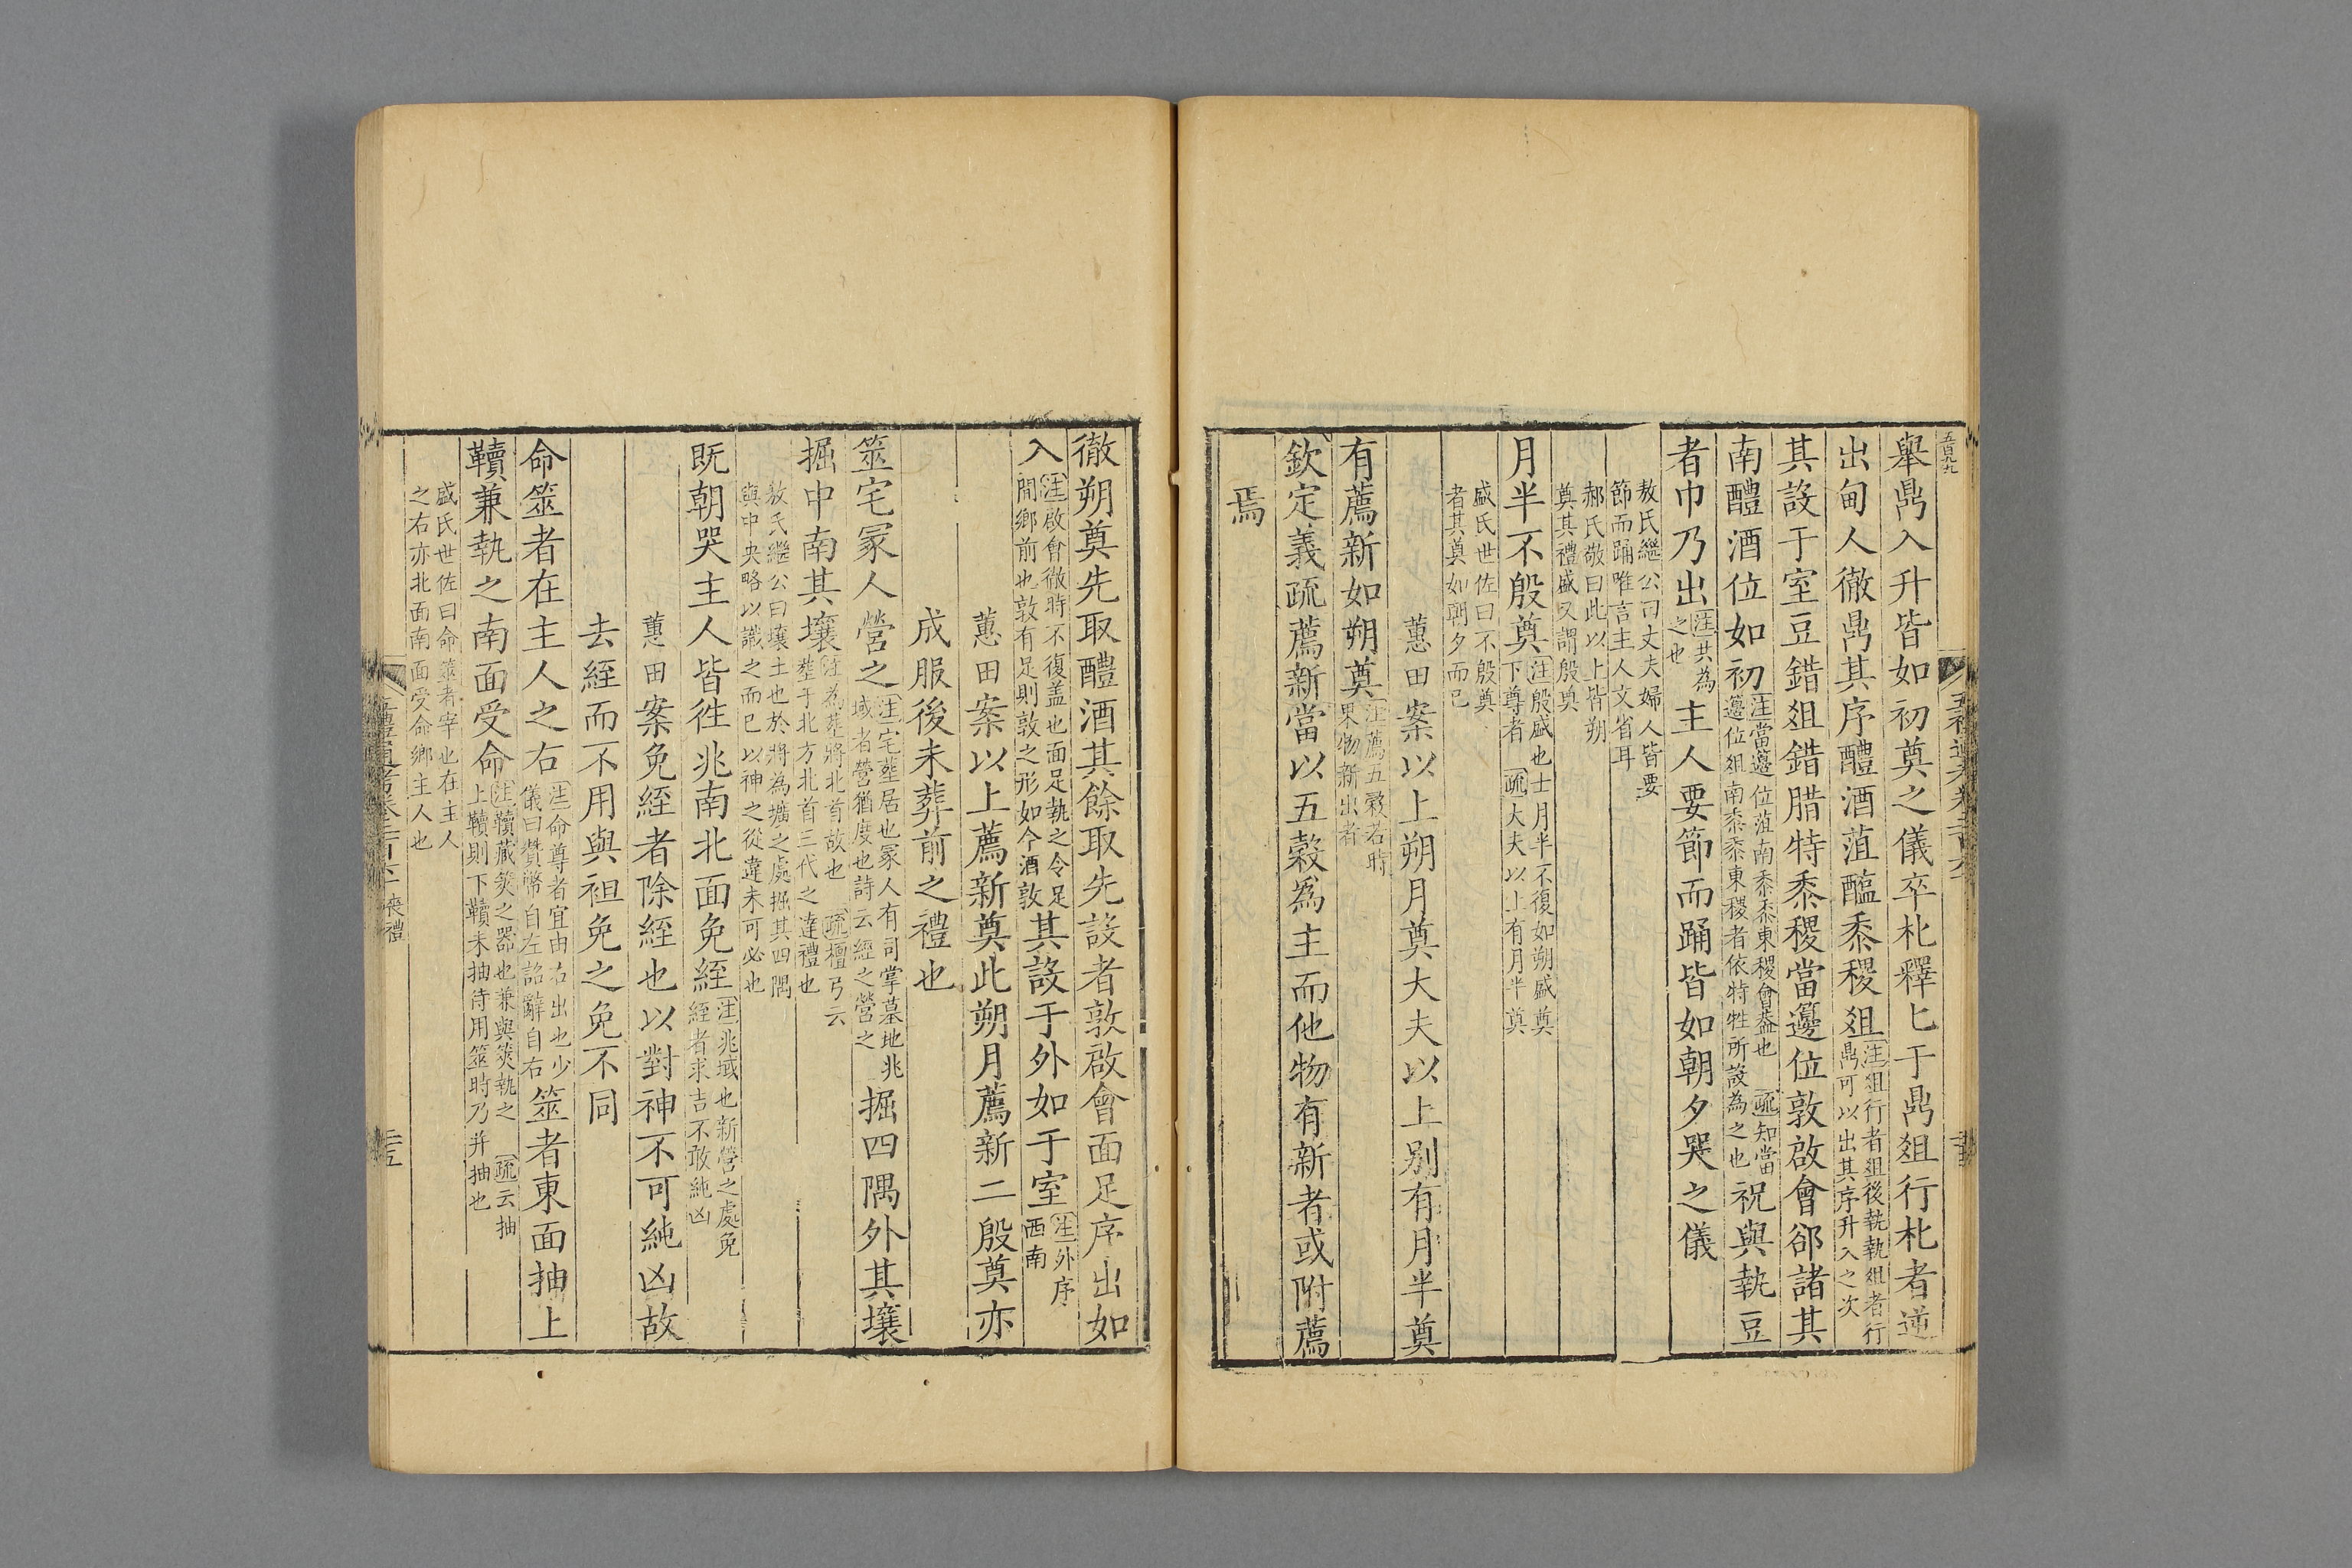 五百九九
舉鼎入升皆如初奠之儀卒朼釋匕于鼎俎行朼者逆
出甸人徹鼎其序醴酒菹醢黍稷俎注俎行者俎後執執俎者行
鼎可以出其序升入之次
其設于室豆錯俎錯腊特黍稷當籩位敦啟會卻諸其
南醴酒位如初注當籩位菹南黍黍東稷會葢也 疏知當
籩位俎南黍黍東稷者依特牲所設為之也祝與執豆
者巾乃出注共為
之也主人要節而踊皆如朝夕哭之儀
敖氏繼公曰丈夫婦人皆要
節而踊唯言主人文省耳
郝氏敬曰此以上皆朔
奠其禮盛又謂殷奠
月半不殷奠注殷盛也士月半不復如朔盛奠
下尊者 疏大夫以上有月半奠
盛氏世佐曰不殷奠
者其奠如朝夕而已
蕙田案以上朔月奠大夫以上別有月半奠
有薦新如朔奠注薦五穀若時
果物新出者
欽定義疏薦新當以五穀為主而他物有新者或附薦
焉
徹朔奠先取醴酒其餘取先設者敦啟會面足序出如
入注啟會徹時不復蓋也面足執之令足
開鄉前也敦有足則敦之形如今酒敦其設于外如于室注外序
西南
蕙田案以上薦新奠此朔月薦新二殷奠亦
成服後未葬前之禮也
筮宅冢人營之注宅葬居也冢人有司掌墓地兆
域者營猶度也詩云經之營之掘四隅外其壤
掘中南其壤注為葬將北首故也 疏檀弓云
葬于北方北首三代之達禮也
敖氏繼公曰壤土也於將為壙之處掘其四隅
與中央略以識之而已以神之從違未可必也
既朝哭主人皆徃兆南北面免絰注兆域也新營之處免
絰者求吉不敢純凶
蕙田案免絰者除絰也以對神不可純凶故
去絰而不用與袒免之免不同
命筮者在主人之右注命尊者宜由右出也少
儀曰贊幣自左詔辭自右筮者東面抽上
韇兼執之南面受命注韇藏筴之器也兼與筴執之 疏云抽
上韇則下韇未抽待用筮時乃并抽也
盛氏世佐曰命筮者宰也在主人
之右亦北面南面受命鄉主人也
喪禮